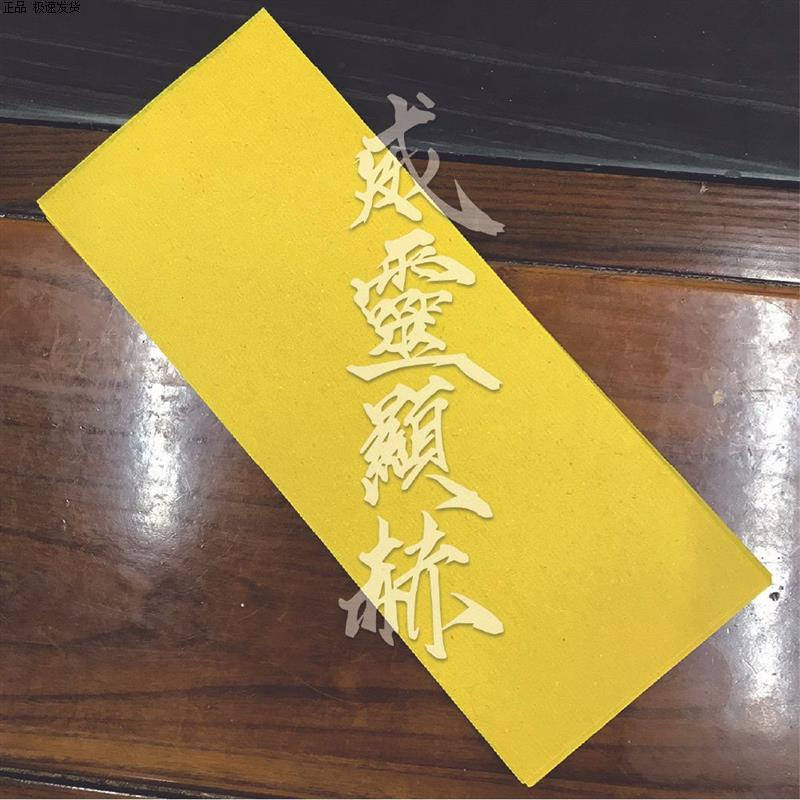 正品 极速发货
威靈顯赫